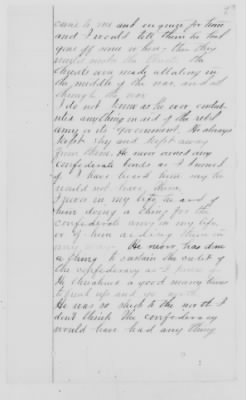 came to me and enquire for him
and I would tell them he had
gone off some where. that they
might
clients was ready all along in
the middle of the war and all
through the war
I do not know as he ever contrib
utes anything in aid of the rebel
army or its government. He always
kept shy and kept away
from them. He never owned any
confederate bonds as I knowed
of. I have heard him say he
would not have them.
I never in my life heard of
him doing a thing for the
confederate army in my life
or of him aiding them in
any way. He never has done
a thing to sustain the credit of
the confederacy as I know of
He threatened a good many times
to break up and go north.
He was so much to the north I
don't think the confederacy
would have had any thing